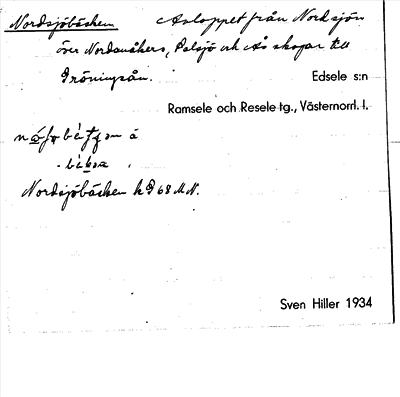 Nordsjöbäcken Avloppet från Nordsjön
över Nordanåkers, Palsjö och Ås skogar till
Gröningsån. Edsele s:n
Ramsele och Resele tg., Västernorrl. l.
Nordsjöbäcken k G 68 M.N.
Sven Hiller 1934